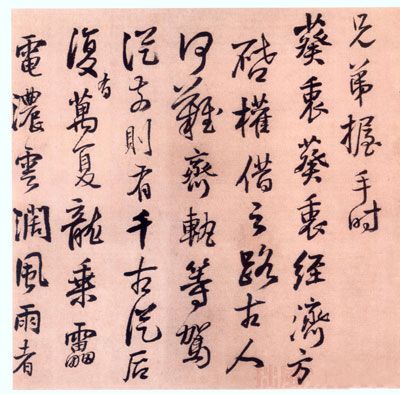 兄弟握手时
葵衷葵衷經濟方
啓權借之路古人
何難齊軌等駕
從前則有千古從后
復有萬夏龍乘靁
電濃雲潤風雨者